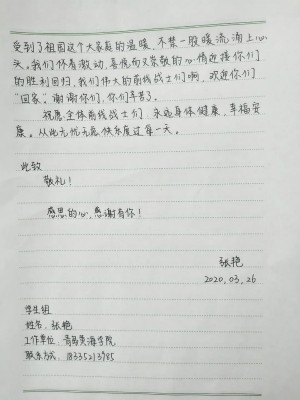 受到了祖国这个大家庭的温暖，不禁一股暖流涌上心
头。我们怀着激动，喜悦而又崇敬的心情迎接你们
的胜利回归，我们伟大的前线战士们啊，欢迎你们
“回家”谢谢你们，你们辛苦了。
祝愿全体前线战士们，永远身体健康，幸福安
康。从此无忧无虑快乐度过每一天。
此致
敬礼！
感恩的心，感谢有你！
张艳
2020.03.26
学生组
姓名：张艳
工作单位：青岛黄海学院
联系方式：18335213985